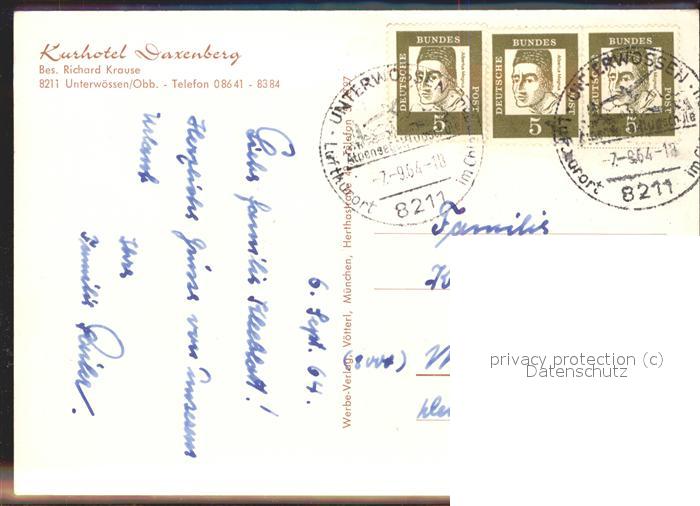 Kurhotel Daxenberg
Bes. Richard Krause
8211 Unterwössen/Obb. - Telefon 08641 - 8384
6. Sept. 64.
Liebe Familie
Herzliche Grüsse von unserem
Urlaub
Ihre
Familie
Werbe-Verlag, Vötterl, München, Herthastraße
DEUTSCHE BUNDES POST
5
DEUTSCHE BUNDES POST
5
DEUTSCHE BUNDES POST
5
UNTERWÖSSEN
Luftkurort
-7.-9.64-18
8211
UNTERWÖSSEN
-7.-9.64-18
8211
Familie
privacy protection (c)
Datenschutz